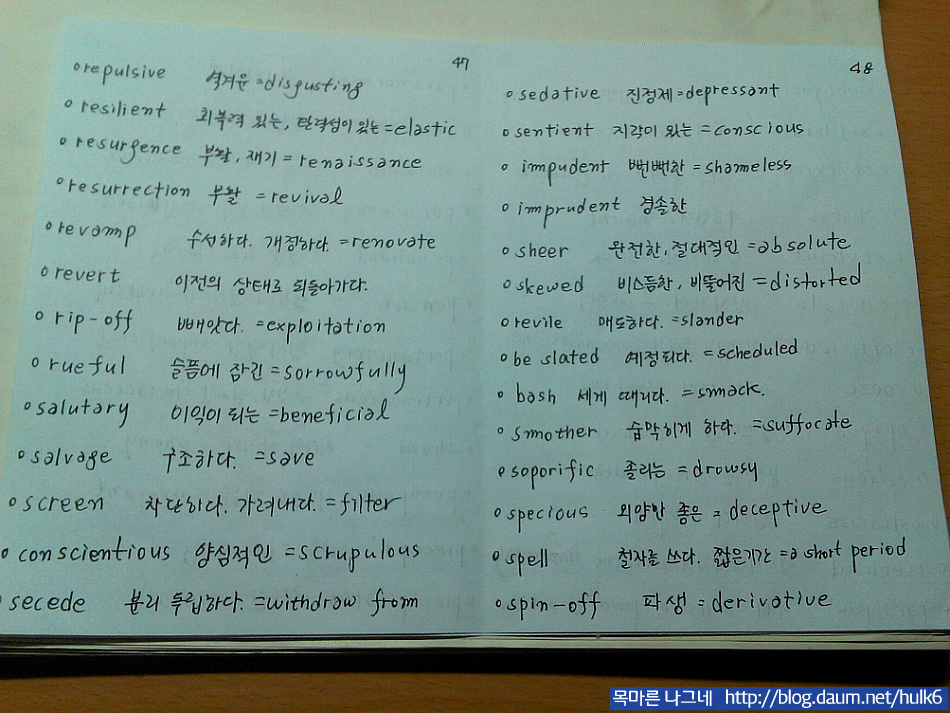 47
repulsive 역겨운 =disgusting
resilient 회복력 있는, 탄력성이 있는 =elastic
resurgence 부활, 재기 = renaissance
resurrection 부활 =revival
revamp 수선하다. 개정하다. =renovate
revert 이전의 상태로 되돌아가다.
rip-off 빼앗다. =exploitation
rueful 슬픔에 잠긴 =sorrowfully
salutary 이익이 되는 =beneficial
salvage 구조하다. =save
screen 차단하다. 가려내다. =filter
conscientious 양심적인 =scrupulous
secede 분리 독립하다. =withdraw from
48
sedative 진정제 =depressant
sentient 지각이 있는 =conscious
impudent 뻔뻔한 =shameless
imprudent 경솔한
sheer 완전한, 절대적인 =absolute
skewed 비스듬한, 비뚤어진 =distorted
revile 매도하다. =slander
be slated 예정되다. =scheduled
bash 세게 때리다. =smack.
smother 숨막히게 하다. =suffocate
soporific 졸리는 =drowsy
specious 외양만 좋은 = deceptive
spell 철자를 쓰다. 짧은기간 =a short period
spin-off 파생 =derivative
목마른 나그네 http://blog.daum.net/hulk6